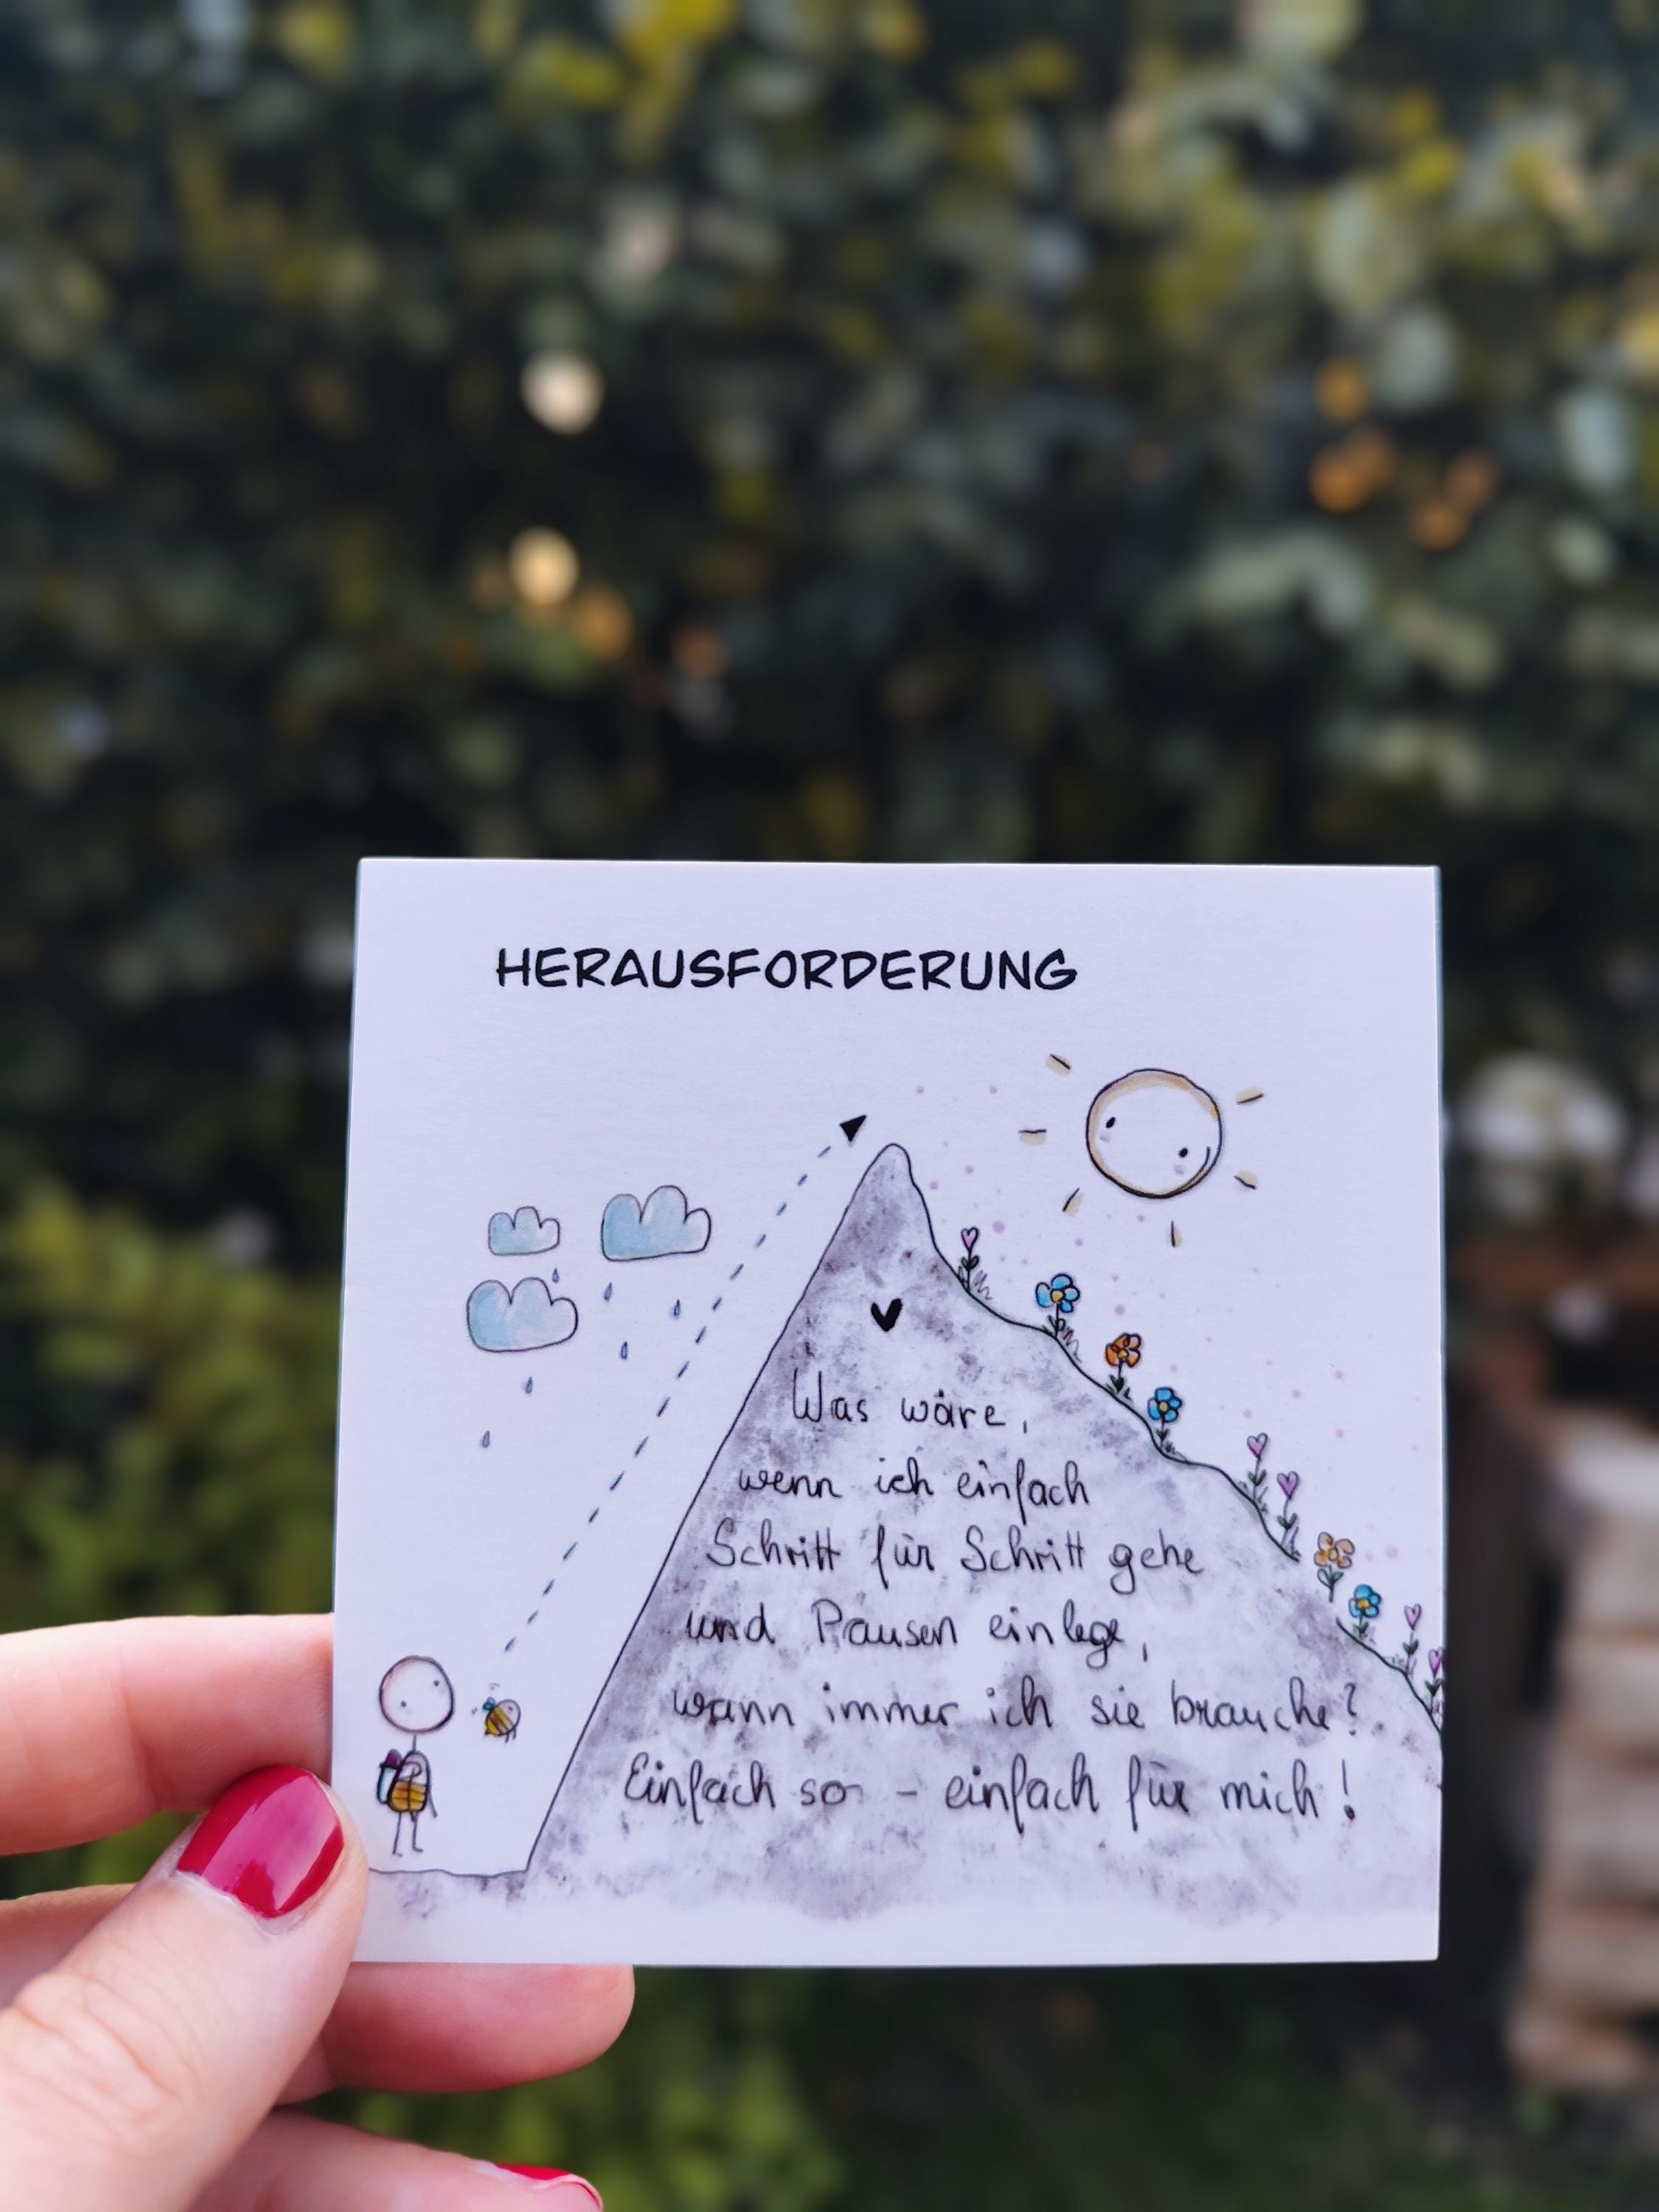 HERAUSFORDERUNG
Was wäre,
wenn ich einfach
Schritt für Schritt gehe
und Pausen einlege,
wann immer ich sie brauche?
Einfach so - einfach für mich!